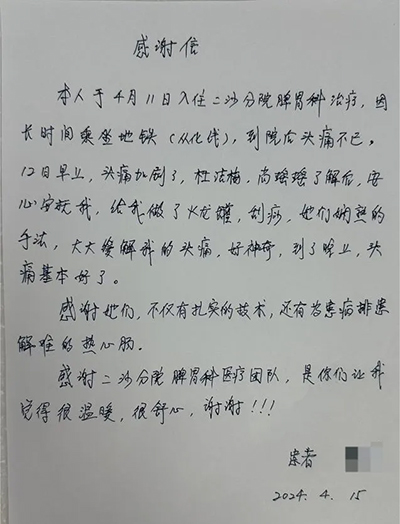 感谢信
本人于4月11日入住二沙分院脾胃科治疗,因
长时间乘坐地铁(从化线),到院后头痛不已。
12日早上,头痛加剧了,杜洁梅,高瑶瑶了解后,安
心安抚我,给我做了火龙罐,刮痧,她们娴熟的
手法,大大缓解我的头痛,好神奇,到了晚上,头
痛基本好了。
感谢她们,不仅有扎实的技术,还有为患病排患
解难的热心肠.
感谢二沙分院脾胃科医疗团队,是你们让我
觉得很温暖,很舒心,谢谢!!!
患者
2024.4.15